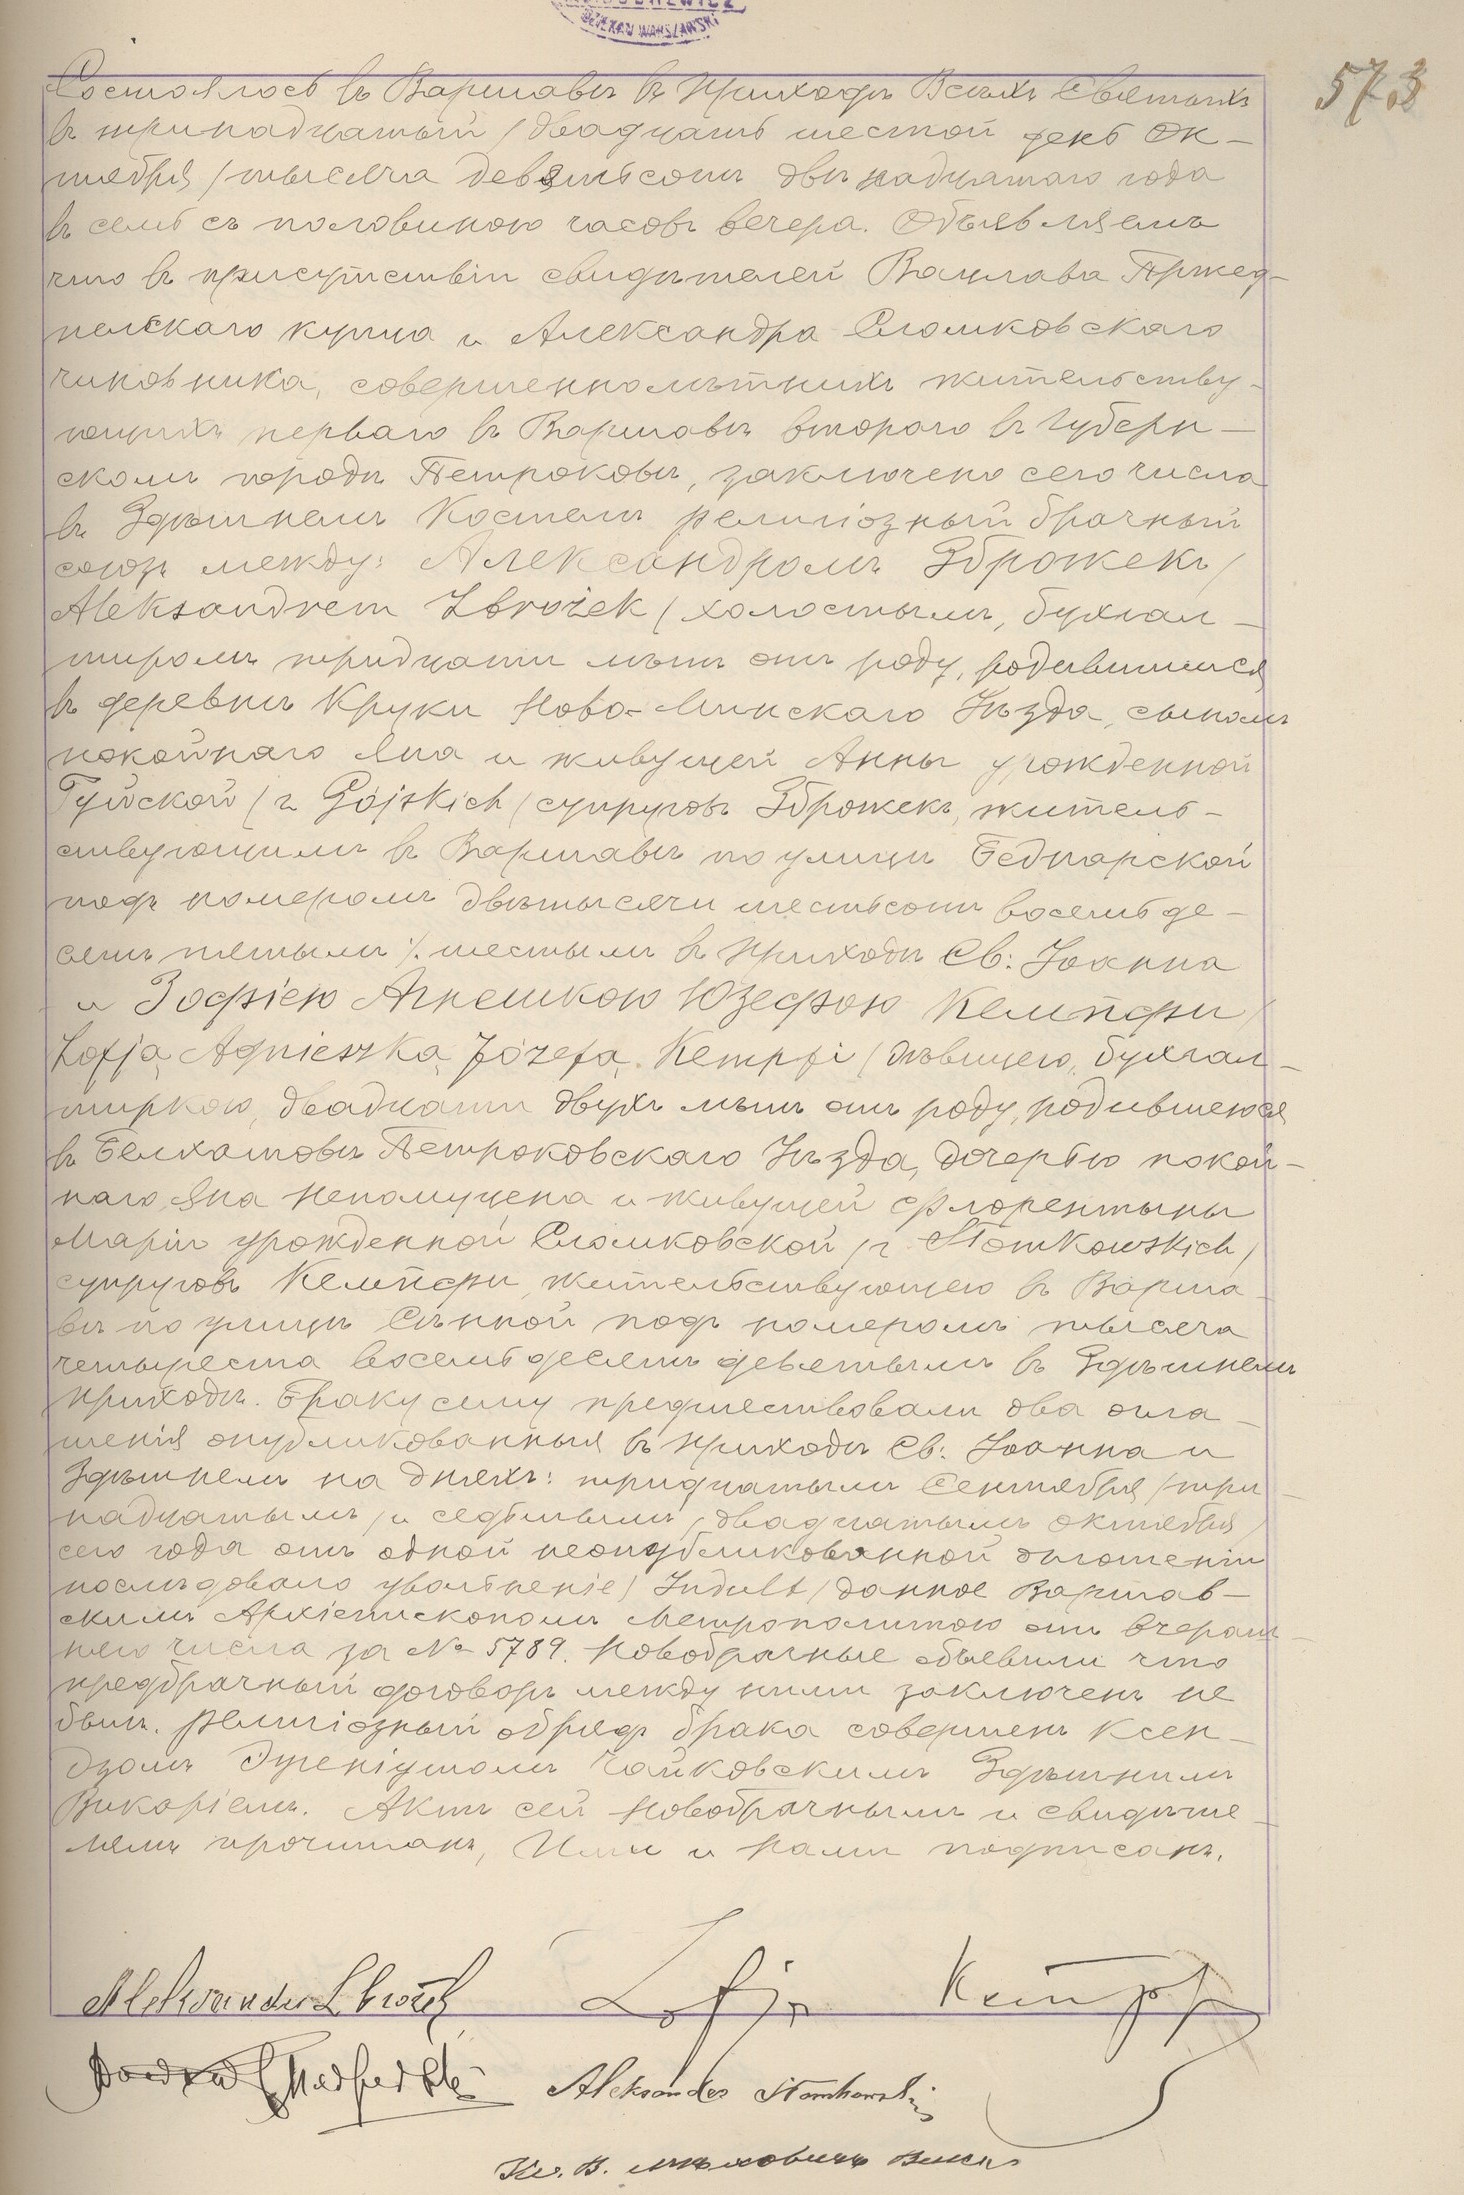 DZIEKAN WARSZAWSKI
573
Состоялось въ Варшавѣ въ приходѣ Всѣхъ Святыхъ
въ тринадцатый / двадцать шестой день Ок-
тября / тысяча девятьсотъ двѣнадцатаго года
въ семь съ половиною часовъ вечера. Объявляемъ
что въ присутствіи свидѣтелей Вацлава Пржед-
пелскаго купца и Александра Сломковскаго
чиновника, совершеннолѣтнихъ жительству-
ющихъ перваго въ Варшавѣ второго въ губерн-
скомъ городѣ Петроковѣ, заключено сего числа
въ Здѣшнемъ Костелѣ религіозный брачный
союзъ между: Александромъ Зброжекъ /
Aleksandrem Zbrożek / холостымъ, бухгал-
теромъ тридцати лѣтъ отъ роду, родившимся
въ деревнѣ Круки Ново-Минскаго Уѣзда, сыномъ
покойнаго Яна и живущей Анны урожденной
Гуйской / z Gójskich / супруговъ Зброжекъ, житель-
ствующимъ въ Варшавѣ по улицѣ Беднарской
подъ номеромъ двѣтысячи шестьсотъ восемьде-
сятъ пятымъ /. шестымъ въ приходѣ Св: Іоанна
и Зофіею Агнешкою Юзефою Кемпфи /
Zofją Agnieszką Józefą Kempfi / дѣвицею, бухгал-
теркою, двадцати двухъ лѣтъ отъ роду, родившеюся
въ Белхатовѣ Петроковскаго Уѣзда, дочерью покой-
наго Яна Непомуцена и живущей Флорентыны
Маріи урожденной Сломковской / z Słomkowskich /
супруговъ Кемпфи, жительствующею въ Варша-
вѣ по улицѣ Сѣнной подъ номеромъ тысяча
четыреста восемьдесятъ девятымъ въ Здѣшнемъ
приходѣ. Браку сему предшествовали два огла-
шенія опубликованныя въ приходѣ Св: Іоанна и
Здѣшнемъ на дняхъ: тридцатымъ Сентября / три-
надцатымъ / и седьмымъ / двадцатымъ октября /
сего года отъ одной неопубликованной оглошеніи
послѣдовало увольненіе / Indult / данное Варшав-
скимъ Архіепископомъ Метрополитою отъ вчераш-
няго числа за № 5789. Новобрачные объявили что
предбрачный договоръ между ними заключенъ не
былъ. Религіозный обрядъ брака совершенъ Ксен-
дзомъ Эугеніушомъ Чайковскимъ Здѣшнимъ
Викаріемъ. Актъ сей Новобрачнымъ и свидѣте-
лямъ прочитанъ, Ими и Нами подписанъ.
Aleksander Zbrożek Zofja Kempfi
Aleksander Słomkowski
Кс. В.